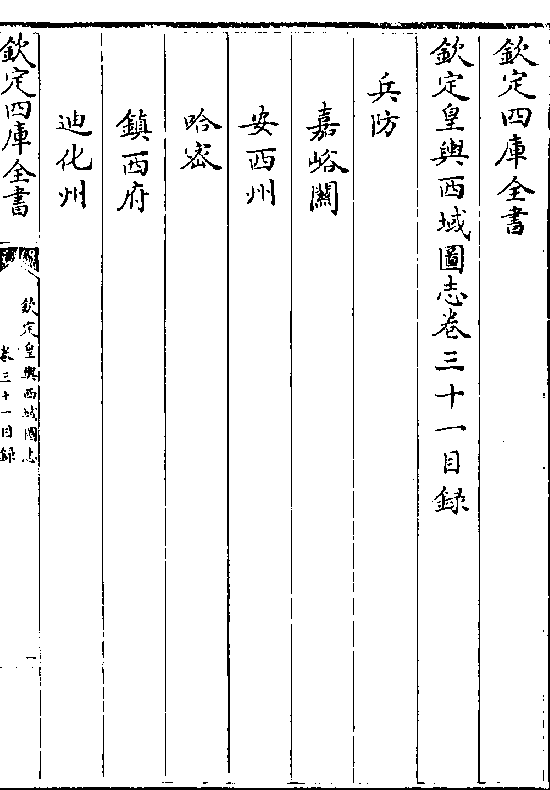 欽定四庫全書
欽定皇輿西域圖志卷三十一目録
兵防
嘉峪關
安西州
哈宻
鎮西府
迪化州
欽定四庫全書
欽定皇輿西域圖志
卷三十一目録
一